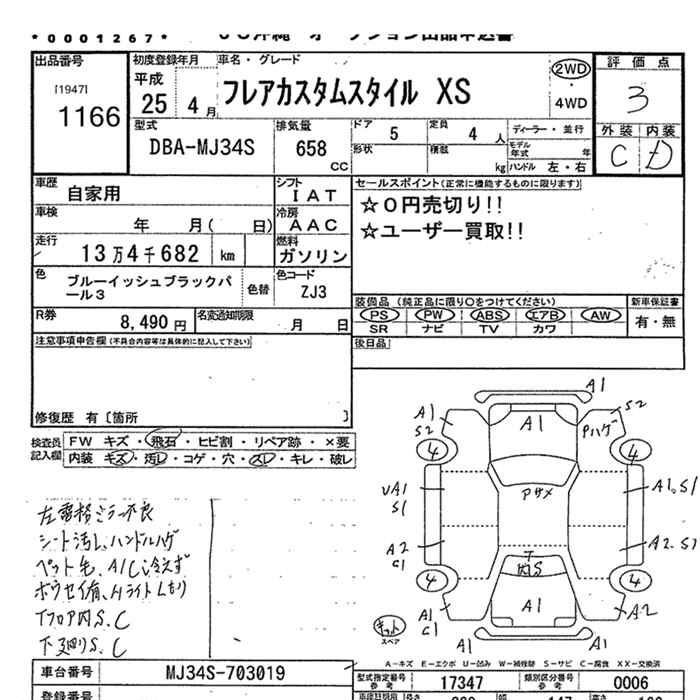 *0001267*
出品番号
[1947]
1166
初度登録年月
平成
25 4月
車名・グレード
フレアカスタムスタイル XS
2WD
・
4WD
評価点
3
外装 内装
C D
型式
DBA-MJ34S
排気量
658
CC
ドア 5
定員 4 人
形状
積載 kg
ディーラー・並行
モデル年式 年
ハンドル 左・右
車歴
自家用
シフト
IAT
車検
年 月( 日)
冷房
AAC
走行
13万4千682 km
燃料
ガソリン
色
ブルーイッシュブラックパール3
色替
色コード
ZJ3
R券
8,490 円
名変通知期限
月 日
セールスポイント(正常に機能するものに限ります)
☆0円売切り!!
☆ユーザー買取!!
装備品(純正品に限り○をつけてください)
PS PW ABS エアB AW
SR ナビ TV カワ
新車保証書
有・無
後日品
注意事項申告欄(不具合内容等は具体的に記入して下さい)
修復歴 有〔箇所 〕
検査員
記入欄
FW キズ・飛石・ヒビ割・リペア跡・×要
内装 キズ・汚レ・コゲ・穴・スレ・キレ・破レ
左電格ミラー不良
シート汚レ、ハンドルハゲ
ペット毛、A/C冷えず
Tフロア内S.C
下廻りS.C
A1
A1
S2
A1
S2
Pハゲ
4
4
Pサメ
UA1
S1
A1.S1
A2
C1
A2.S1
4
4
A1
C1
A1
A2
A1
A1
キット
スペア
A-キズ E-エクボ U-凹み W-補修跡 S-サビ C-腐食 XX-交換済
車台番号
MJ34S-703019
型式指定番号
参考
17347
類別区分番号
参考
0006
登録番号